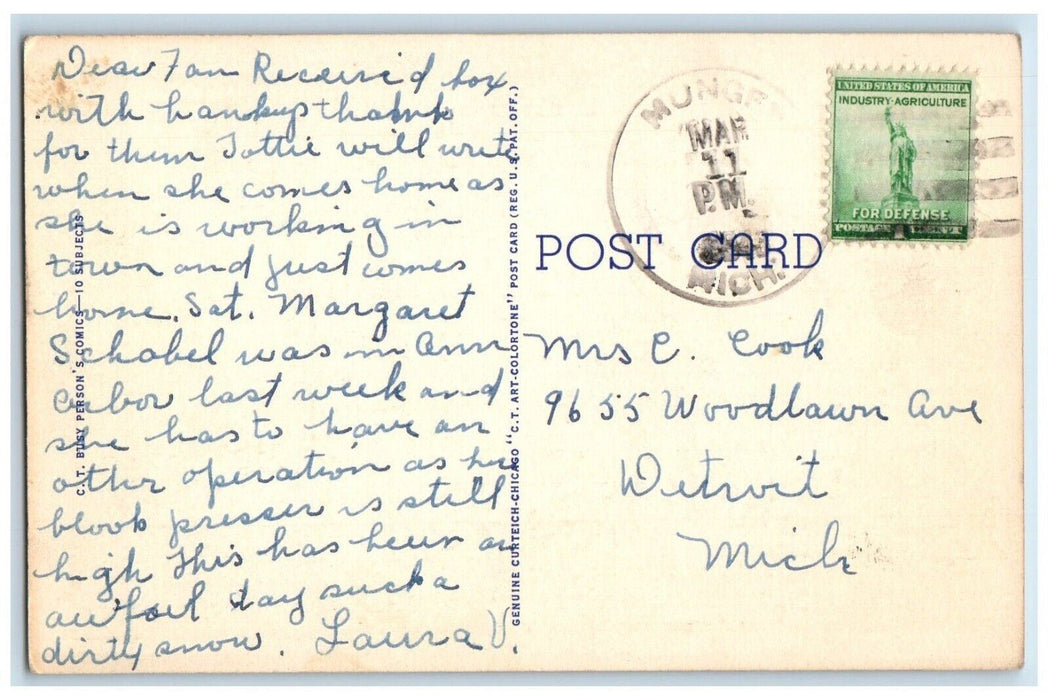 Dear Fan Received box
with hankys thanks
for them Tottie will write
when she comes home as
she is working in
town and just comes
home. Sat. Margaret
Schabel was in Ann
Arbor last week and
she has to have an
other operation as her
blook presser is still
high This has been an
awful day such a
dirty snow. Laura V.
C.T. BUSY PERSON'S COMICS—10 SUBJECTS
GENUINE CURTEICH-CHICAGO "C.T. ART-COLORTONE" POST CARD (REG. U.S. PAT. OFF.)
MAR
11
P.M.
MICH.
UNITED STATES OF AMERICA
INDUSTRY·AGRICULTURE
FOR DEFENSE
POSTAGE
POST CARD
Mrs C. Cook
9655 Woodlawn Ave
Detroit
Mich